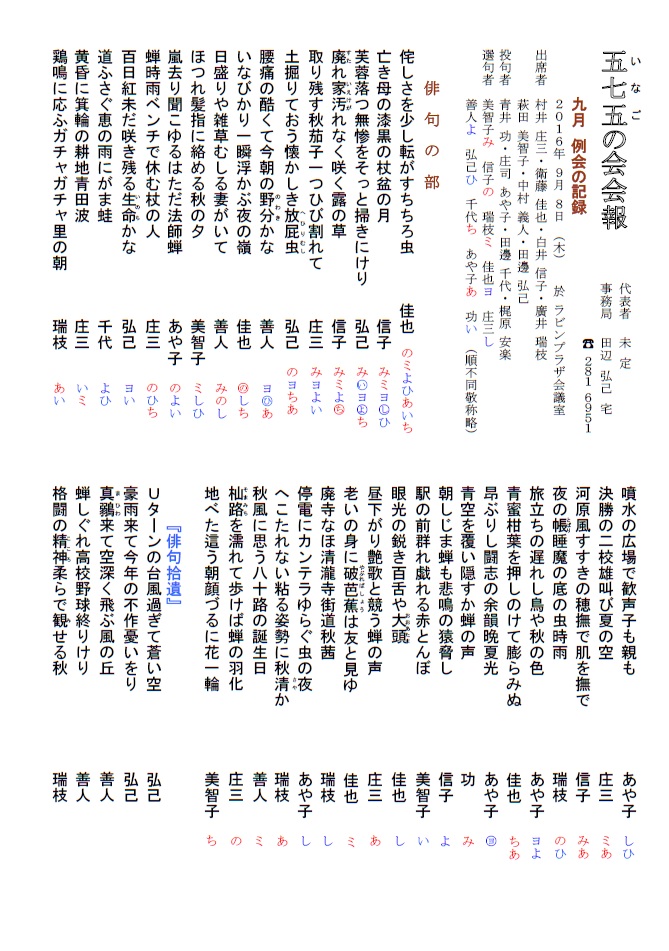 五七五の会会報
いなご
代表者 未定
事務局 田辺 弘己 宅
☎ 281 6951
九月 例会の記録
2016年 9月 8日 (木) 於 ラピンプラザ会議室
出席者 村井 庄三・衛藤 佳也・白井 信子・廣井 瑞枝
萩田 美智子・中村 義人・田邊 弘己
投句者 青井 功・庄司 あや子・田邊 千代・梶原 安楽
選句者 美智子み 信子の 瑞枝ミ 佳也ヨ 庄三し
善人よ 弘己ひ 千代ち あや子あ 功い (順不同敬称略)
俳句の部
侘しさを少し転がすちちろ虫 佳也 のミよひあいち
亡き母の漆黒の杖盆の月 信子 みミヨしひ
芙蓉落つ無惨をそっと掃きにけり 弘己 みいヨよち
廃れ家汚れなく咲く露の草 信子 みミよち
取り残す秋茄子一つひび割れて 庄三 みヨよい
土掘りておう懐かしき放屁虫 弘己 のヨちあ
へひりむし
腰痛の酷くて今朝の野分かな 善人 ヨひあ
のわき
いなびかり一瞬浮かぶ夜の嶺 佳也 のしち
日盛りや雑草むしる妻がいて 善人 みのし
ほつれ髪指に絡める秋の夕 美智子 ミしひ
嵐去り聞こゆるはただ法師蝉 あや子 のよい
蝉時雨ベンチで休む杖の人 庄三 のひち
百日紅未だ咲き残る生命かな 弘己 ヨい
いのち
道ふさぐ恵の雨にがま蛙 千代 よひ
黄昏に箕輪の耕地青田波 庄三 いミ
鶏鳴に応ふガチャガチャ里の朝 瑞枝 あい
噴水の広場で歓声子も親も あや子 しひ
決勝の二校雄叫び夏の空 庄三 ミあ
河原風すすきの穂撫で肌を撫で 信子 みあ
夜の帳睡魔の底の虫時雨 瑞枝 のひ
旅立ちの遅れし鳥や秋の色 あや子 ヨよ
青蜜柑葉を押しのけて膨らみぬ 佳也 ちあ
昂ぶりし闘志の余韻晩夏光 あや子 ヨ
青空を覆い隠すか蝉の声 功 み
朝しじま蝉も悲鳴の猿脅し 信子 よ
駅の前群れ戯れる赤とんぼ 美智子 い
眼光の鋭き百舌や大頭 佳也 し
昼下がり艶歌と競う蝉の声 庄三 あ
老いの身に破芭蕉は友と見ゆ 佳也 ミ
廃寺なほ清瀧寺街道秋茜 瑞枝 し
停電にカンテラゆらぐ虫の夜 あや子 し
へこたれない粘る姿勢に秋清か 瑞枝 あ
さや
秋風に思う八十路の誕生日 善人 ミ
杣路を濡れて歩けば蝉の羽化 庄三 の
そまみち
地べた這う朝顔づるに花一輪 美智子 ち
『俳句拾遺』
Uターンの台風過ぎて蒼い空 弘己
豪雨来て今年の不作憂いをり 弘己
真鶸来て空深く飛ぶ風の丘 善人
まひわ
蝉しぐれ高校野球終りけり 善人
格闘の精神柔らで観せる秋 瑞枝